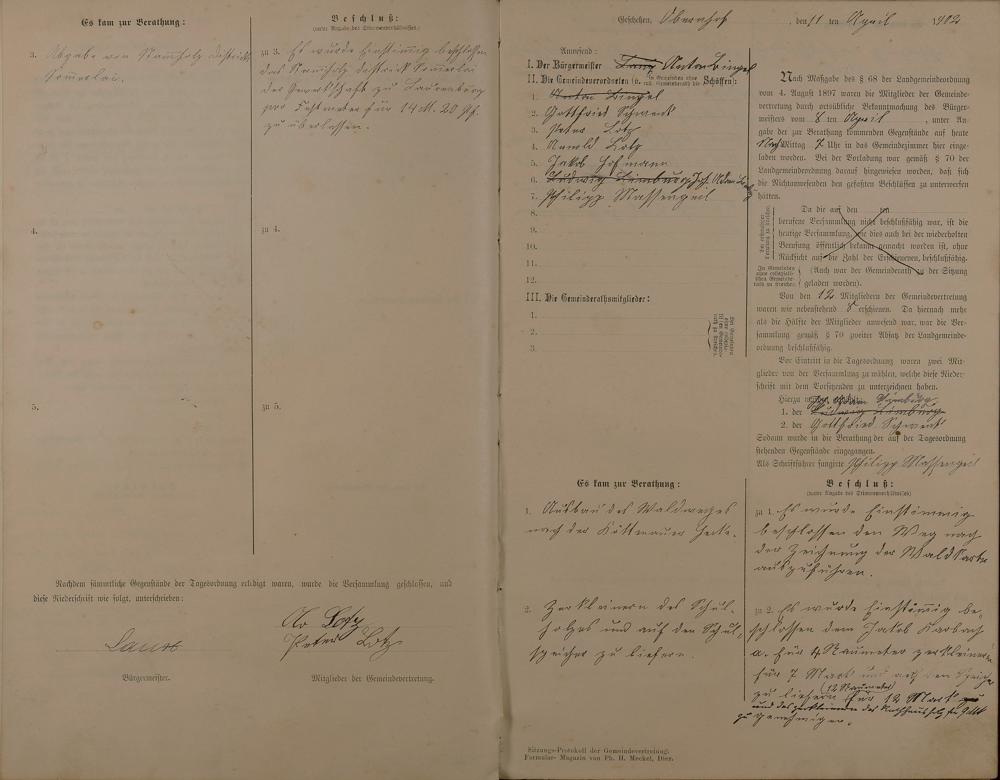 Es kam zur Berathung:
Beschluß:
(unter Angabe des Stimmenverhältnisses.)
3. Abgabe von Stammholz Distrikt
Sommerlai.
zu 3. Es wurde Einstimmig beschlossen
das Stammholz Distrikt Sommerlai
der Gewerkschaft zu Laurenburg
pro Festmeter für 14 M. 20 Pf.
zu überlassen.
4.
zu 4.
5.
zu 5.
Nachdem sämmtliche Gegenstände der Tagesordnung erledigt waren, wurde die Versammlung geschlossen, und
diese Niederschrift wie folgt, unterschrieben:
Lotz
Peter Lotz
Bürgermeister.
Mitglieder der Gemeindevertretung.
Geschehen, Obernhof, den 11 ten April 1902
Anwesend:
I. Der Bürgermeister Anton Bingel
II. Die Gemeindeverordneten Schöffen):
1. Anton Bingel
2. Gottfried Schwenk
3. Peter Lotz
4. Arnold Lotz
5. Jakob Hofmann
6. Ludwig Himburg
7. Philipp Massengeil
8.
9.
10.
11.
12.
III. Die Gemeinderathsmitglieder:
1.
2.
3.
Nach Maßgabe des § 68 der Landgemeindeordnung
vom 4. August 1897 waren die Mitglieder der Gemeinde-
vertretung durch ortsübliche Bekanntmachung des Bürger-
meisters vom 8 ten April, unter An-
gabe der zur Berathung kommenden Gegenstände auf heute
Nachmittag 7 Uhr in das Gemeindezimmer hier einge-
laden worden. Bei der Vorladung war gemäß § 70 der
Landgemeindeordnung darauf hingewiesen worden, daß sich
die Nichtanwesenden den gefaßten Beschlüssen zu unterwerfen
hätten.
Da die auf den ten
berufene Versammlung nicht beschlußfähig war, ist die
heutige Versammlung, wie dies auch bei der wiederholten
Berufung öffentlich bekannt gemacht worden ist, ohne
Rücksicht auf die Zahl der Erschienenen, beschlußfähig.
(Auch war der Gemeinderath zu der Sitzung
geladen worden).
Von den 12 Mitgliedern der Gemeindevertretung
waren wie nebenstehend 8 erschienen. Da hiernach mehr
als die Hälfte der Mitglieder anwesend war, war die Ver-
sammlung gemäß § 70 zweiter Absatz der Landgemeinde-
ordnung beschlußfähig.
Vor Eintritt in die Tagesordnung waren zwei Mit-
glieder von der Versammlung zu wählen, welche diese Nieder-
schrift mit dem Vorsitzenden zu unterzeichnen haben.
Hierzu Adam Himburg
1. der Ludwig Himburg
2. der Gottfried Schwenk
Sodann wurde in die Berathung der auf der Tagesordnung
stehenden Gegenstände eingegangen.
Als Schriftführer fungirte Philipp Massengeil
Es kam zur Berathung:
Beschluß:
(unter Angabe des Stimmenverhältnisses)
1. Ausbau des Waldweges
nach der Hecke.
zu 1. Es wurde Einstimmig
beschlossen den Weg nach
der Zeichnung der Waldkarte
auszuführen.
2. Zerkleinern des Schul-
holzes und auf den Schul-
speicher zu liefern.
zu 2. Es wurde Einstimmig be-
schlossen dem Jakob Karbach
a. für 4 Raumeter zerkleinern
für 7 Mark und auf den Speicher
zu liefern (12 Raumeter) für 12 Mark
und das zerkleinern des Rathhausholz für
zu genehmigen.
Sitzungs-Protokoll der Gemeindevertretung.
Formular-Magazin von Ph. H. Meckel, Diez.